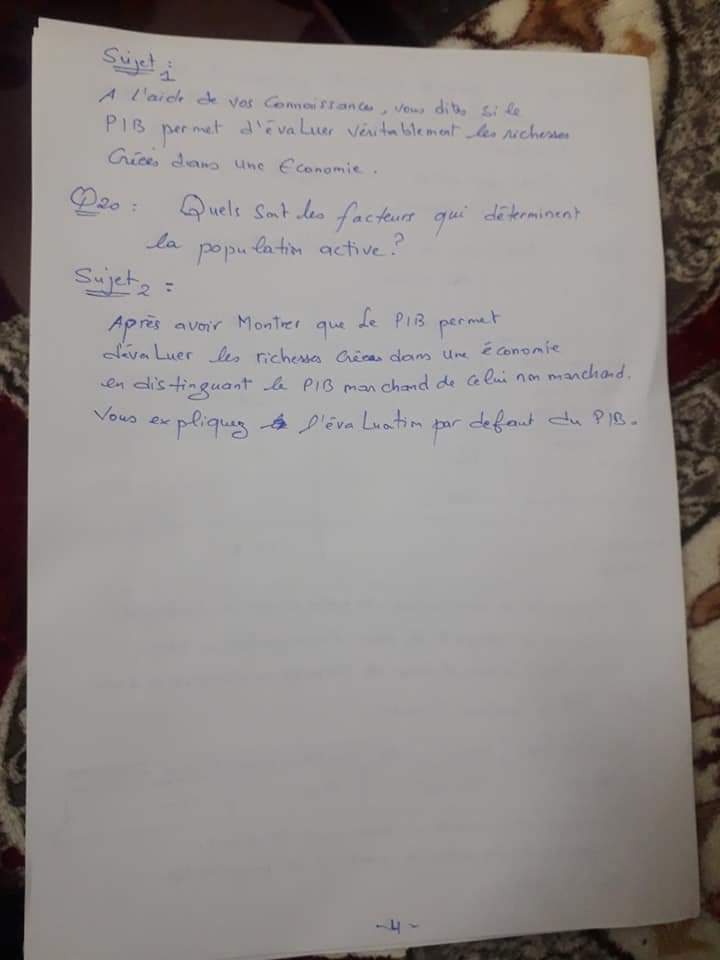 Sujet 1 :
A l'aide de vos connaissances, vous dites si le
PIB permet d'évaluer véritablement les richesses
Créées dans une Economie.
Q20 : Quels sont les facteurs qui déterminent
la population active ?
Sujet 2 :
Après avoir Montrer que Le PIB permet
d'évaluer les richesses Créées dans une économie
en distinguant le PIB marchand de celui non marchand.
Vous expliquez l'évaluation par defaut du PIB.
-4-